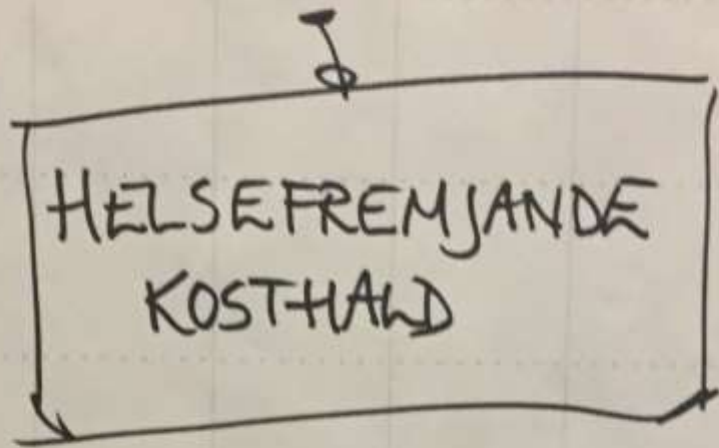 HELSEFREMJANDE
KOSTHALD